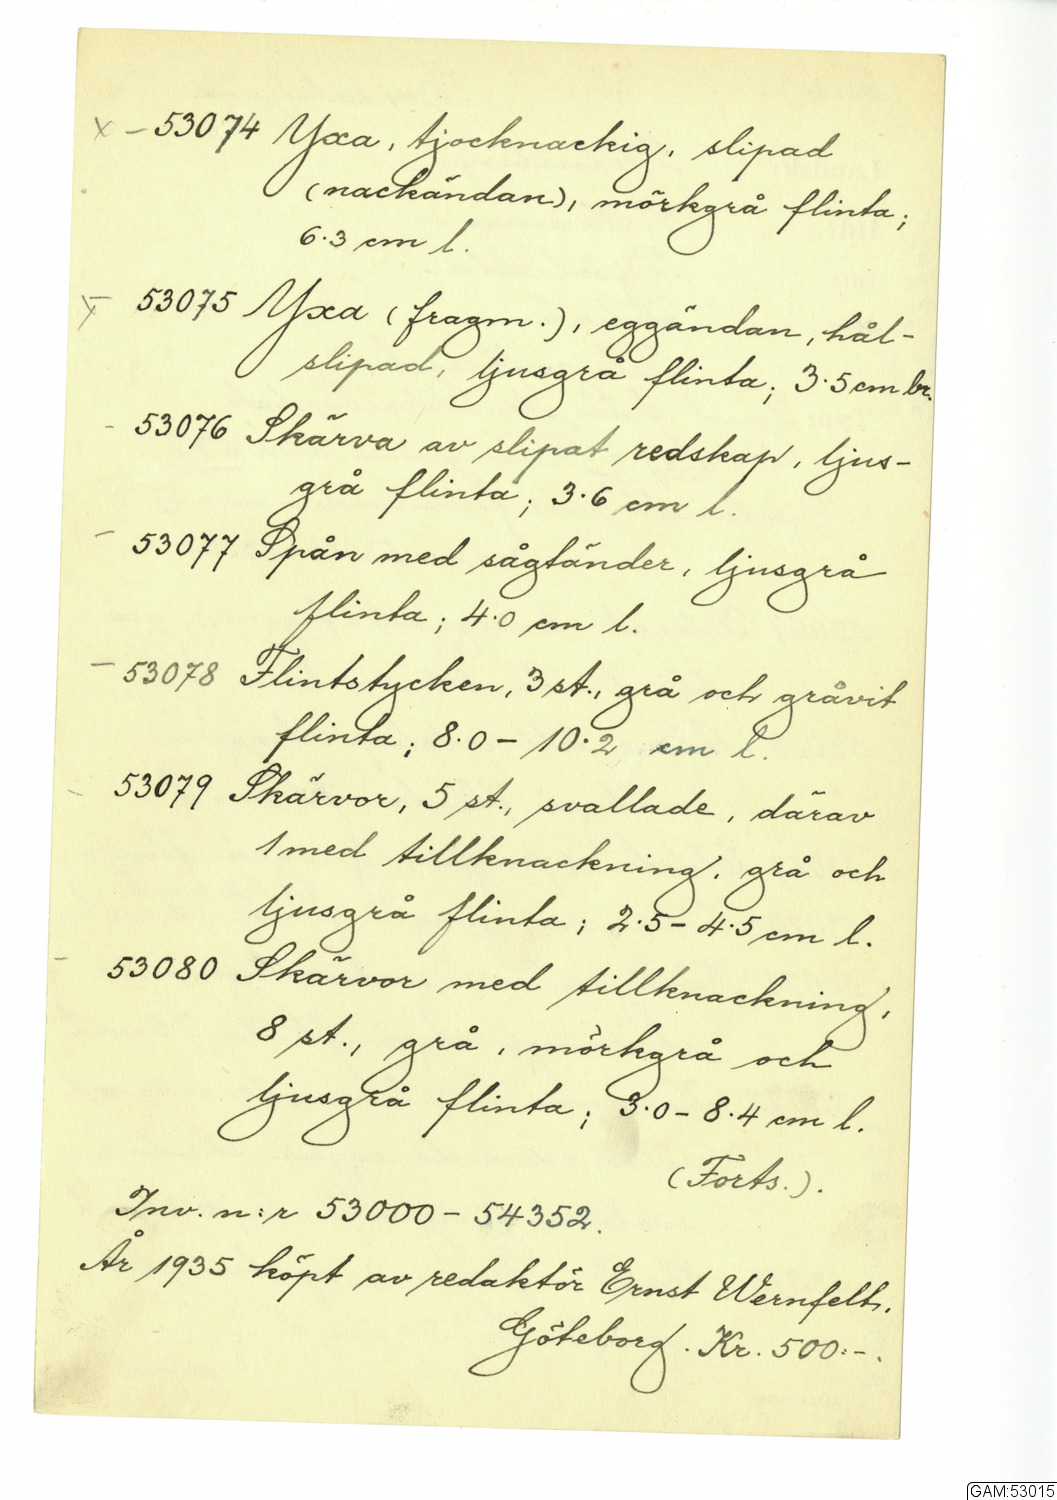 x – 53074 Yxa, tjocknackig, slipad
(nackändan), mörkgrå flinta;
6.3 cm l.
x – 53075 Yxa (fragm.), eggändan, hål-
slipad, ljusgrå flinta; 3.5 cm br.
- 53076 Skärva av slipat redskap, ljus-
grå flinta; 3.6 cm l.
– 53077 Spån med sågtänder, ljusgrå
flinta; 4.0 cm l.
– 53078 Flintstycken, 3 st., grå och gråvit
flinta; 8.0 – 10.2 cm l.
- 53079 Skärvor, 5 st., svallade, därav
1 med tillknackning, grå och
ljusgrå flinta; 2.5 – 4.5 cm l.
– 53080 Skärvor med tillknackning,
8 st., grå, mörkgrå och
ljusgrå flinta; 3.0 – 8.4 cm l.
(Forts.).
Inv. n:r 53000 – 54352.
År 1935 köpt av redaktör Ernst Wernfelt,
Göteborg. Kr. 500:-.
GAM:53015